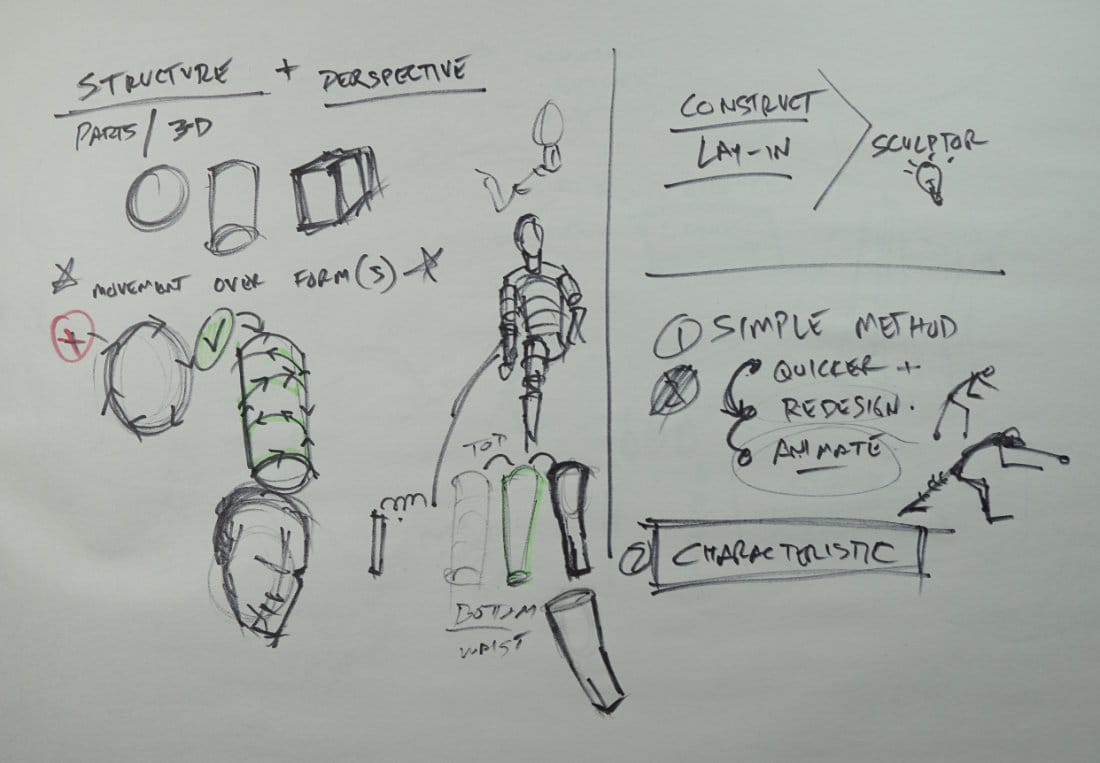 STRUCTURE + PERSPECTIVE
PARTS / 3-D
MOVEMENT OVER FORM(S)
TOP
BOTTOM
WRIST
CONSTRUCT
LAY-IN
SCULPTOR
1 SIMPLE METHOD
QUICKER +
REDESIGN.
ANIMATE
2 CHARACTERISTIC